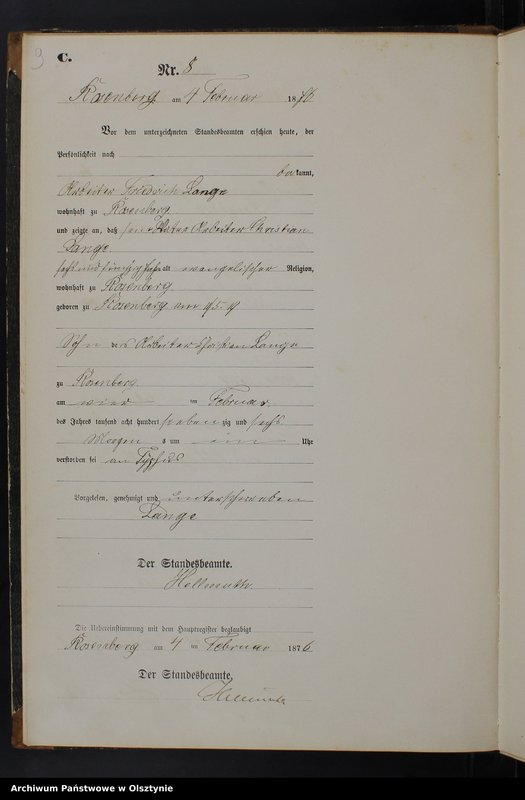 9
C.
Nr. 8
Rosenberg am 4 Februar 1876
Vor dem unterzeichneten Standesbeamten erschien heute, der
Persönlichkeit nach
bekannt,
Arbeiter Friedrich Lange
wohnhaft zu Rosenberg
und zeigte an, daß sein Vater Arbeiter Christian
Lange
alt evangelischer Religion,
wohnhaft zu Rosenberg
geboren zu Rosenberg
Sohn des Arbeiters Lange
zu Rosenberg
am vier im Februar
des Jahres tausend acht hundert siebenzig und sechs
Morgens um ein Uhr
verstorben sei an Typhus
Vorgelesen, genehmigt und unterschrieben
Lange
Der Standesbeamte.
Hellmuth
Die Uebereinstimmung mit dem Hauptregister beglaubigt
Rosenberg am 4 ten Februar 1876
Der Standesbeamte,
Archiwum Państwowe w Olsztynie